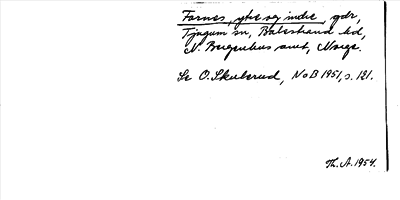 Farnes, ytre og indre, gdr,
Tjugum sn, Balestrand hd,
N. Bergenhus amt, Norge.
Se O. Skulerud, NoB 1951, s. 121.
Th. A. 1954.